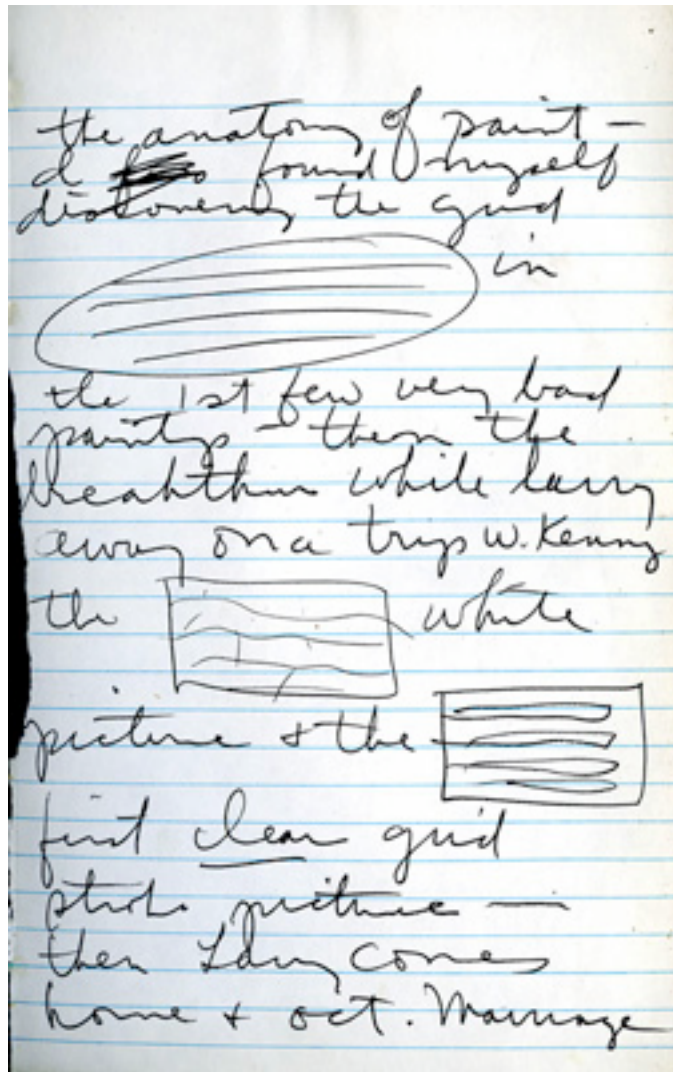 the anatomy of paint –
d found myself
discovering the grid
in
the 1st few very bad
paintgs – then the
breakthru while Larry
away on a trip w. Kenny
the white
picture + the
first clear grid
stroke picture —
then Larry comes
home + oct. Marriage